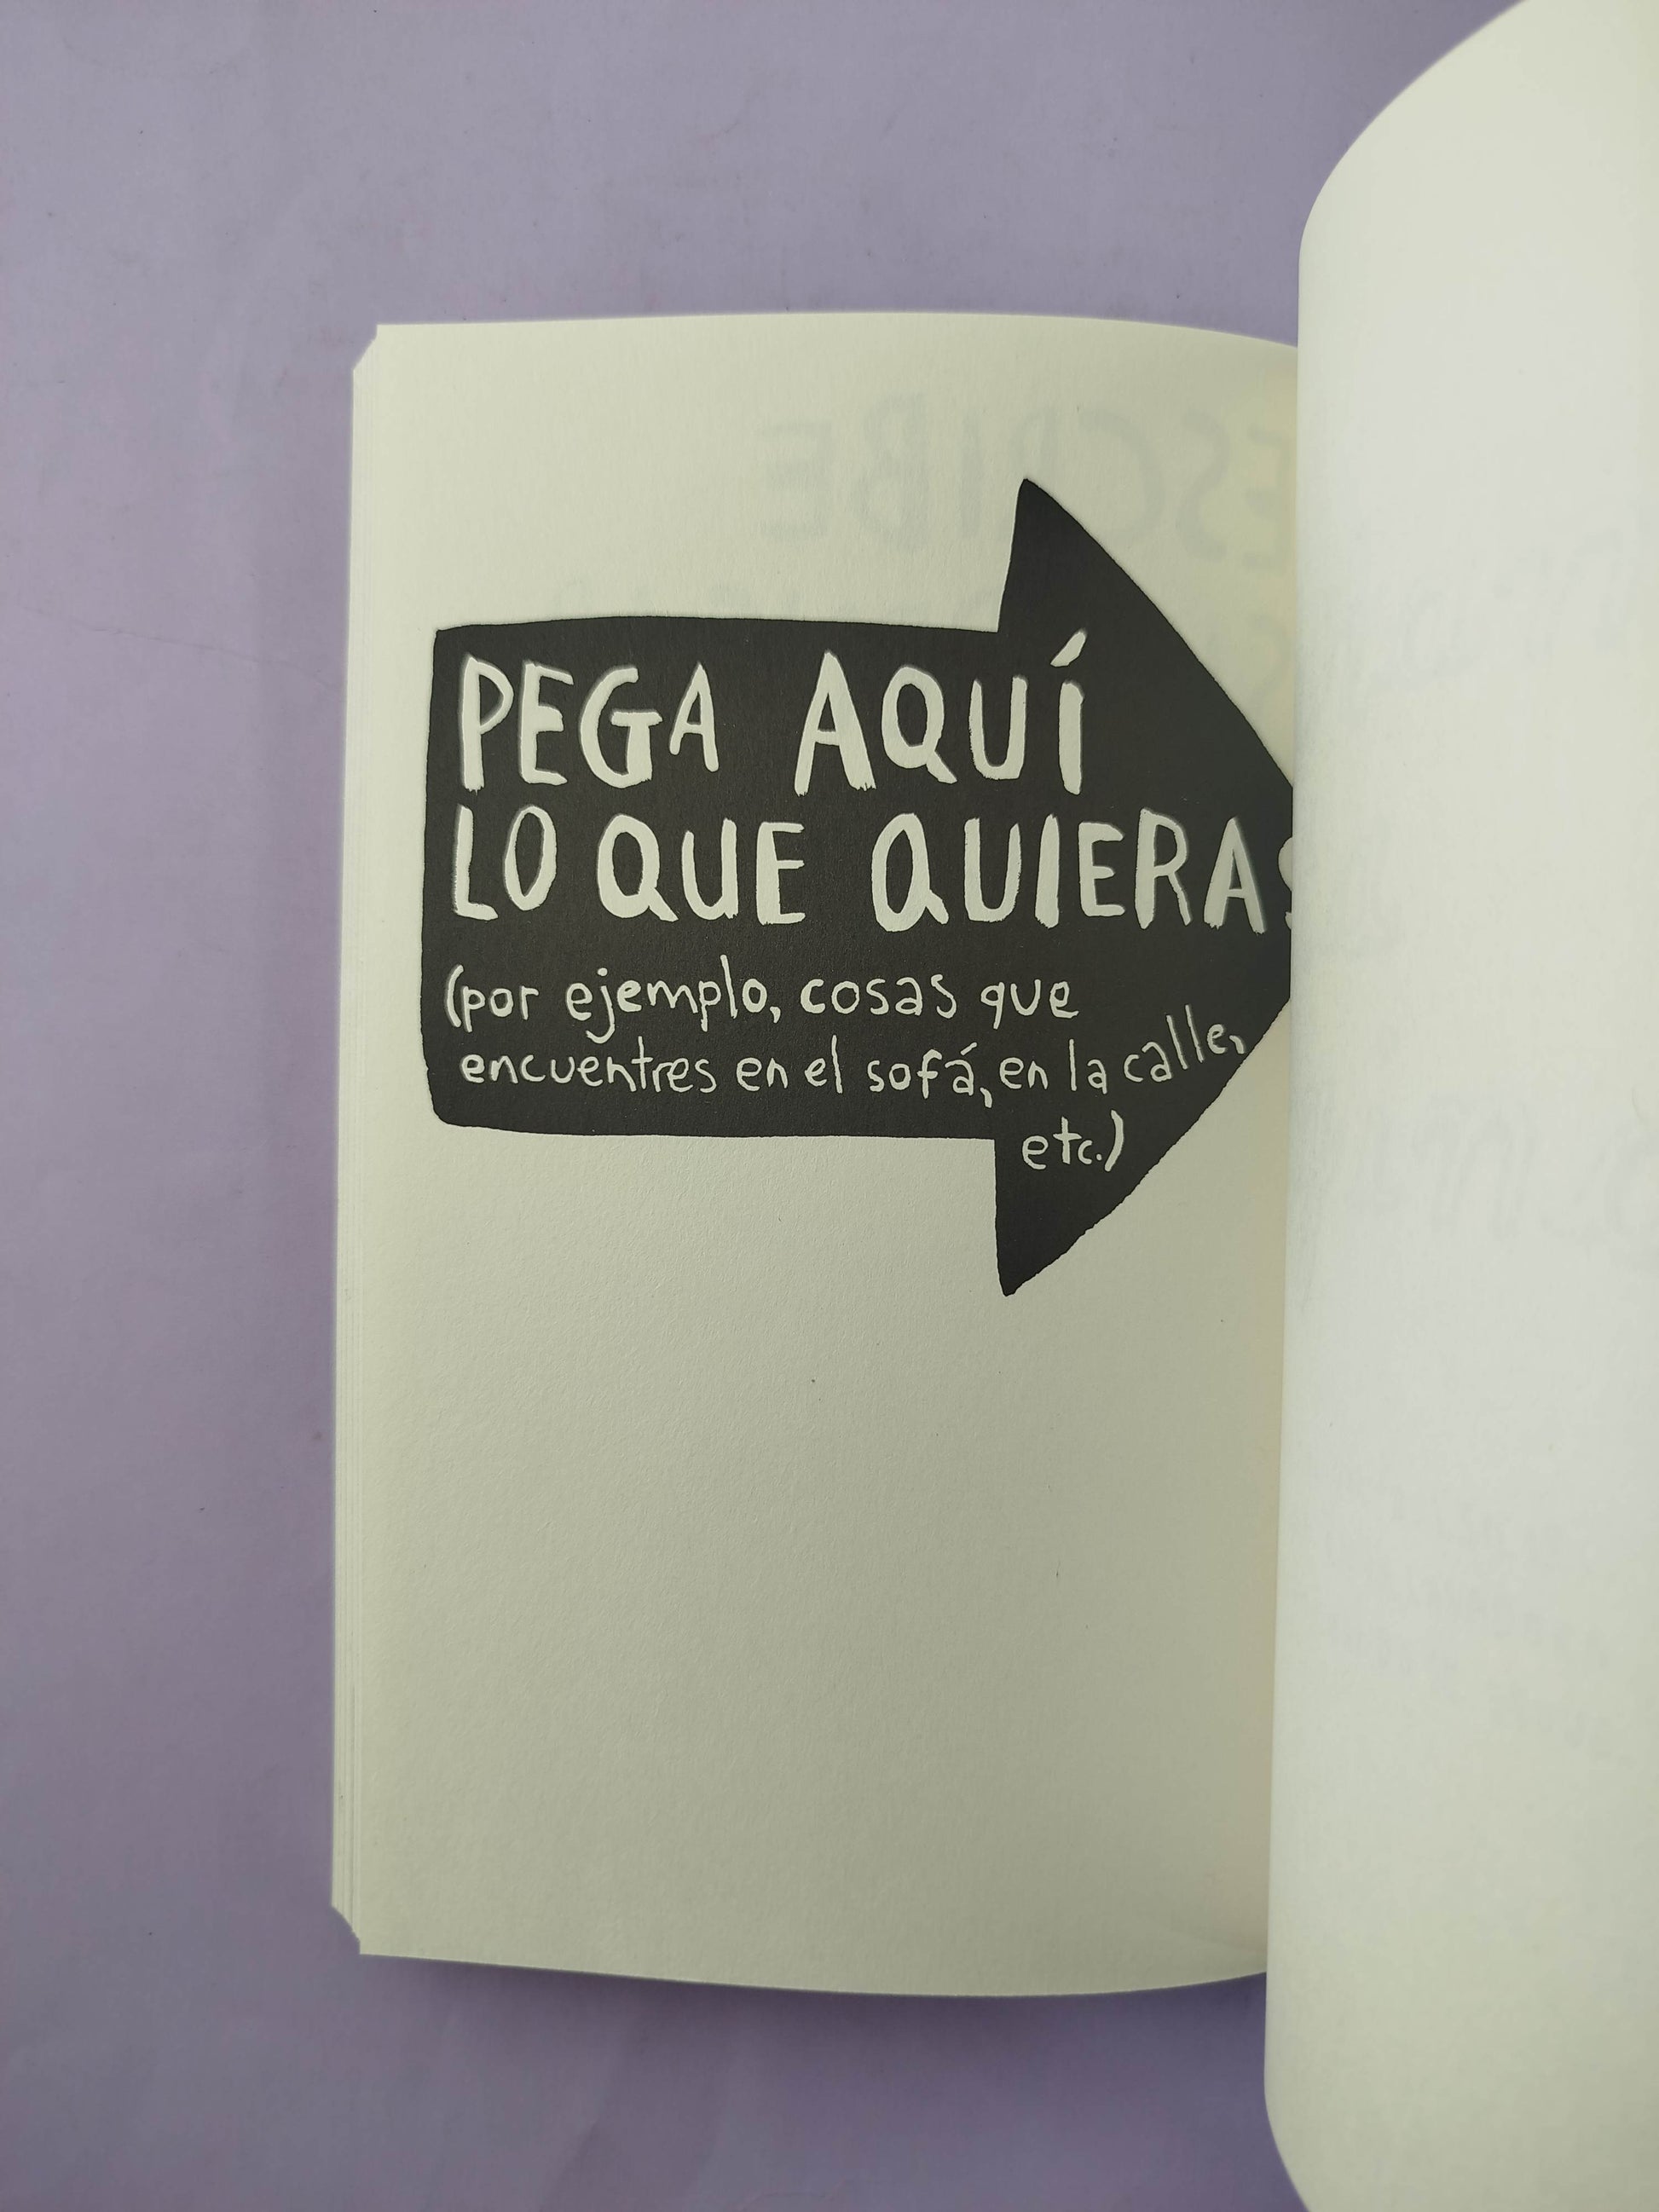 PEGA AQUÍ
LO QUE QUIERAS
(por ejemplo, cosas que
encuentres en el sofá, en la calle,
etc.)